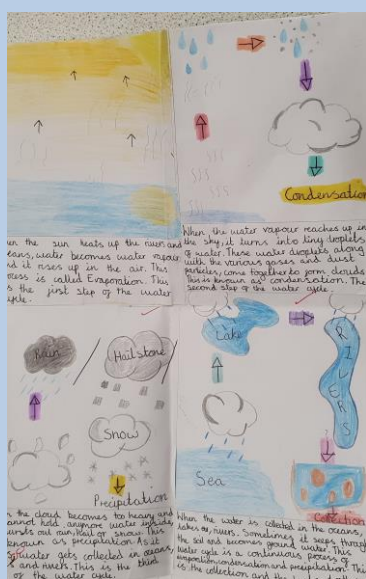 Condensation
the sun heats up the rivers and
water becomes water vapour
it rises up in the air. This
is called Evaporation. This
is the first step of the water
When the water vapour reaches up in
the sky, it turns into tiny droplets
of water. These water droplets along
with the various gases and dust
particles, come together to form clouds
This is known as condensation. The
second step of the water cycle.
Rain
Hailstone
Snow
Precipitation
the cloud becomes too heavy and
cannot hold anymore water inside,
out rain, hail or snow. This
known as precipitation. As it
water gets collected in oceans,
and rivers. This is the third
of the water cycle.
Lake
RIVERS
Sea
Collection
When the water is collected in the oceans,
lakes or, rivers. Sometimes it seeps through
the soil and becomes ground water. This
water cycle is a continuous process of
evaporation, condensation and precipitation. This
is the collection and the